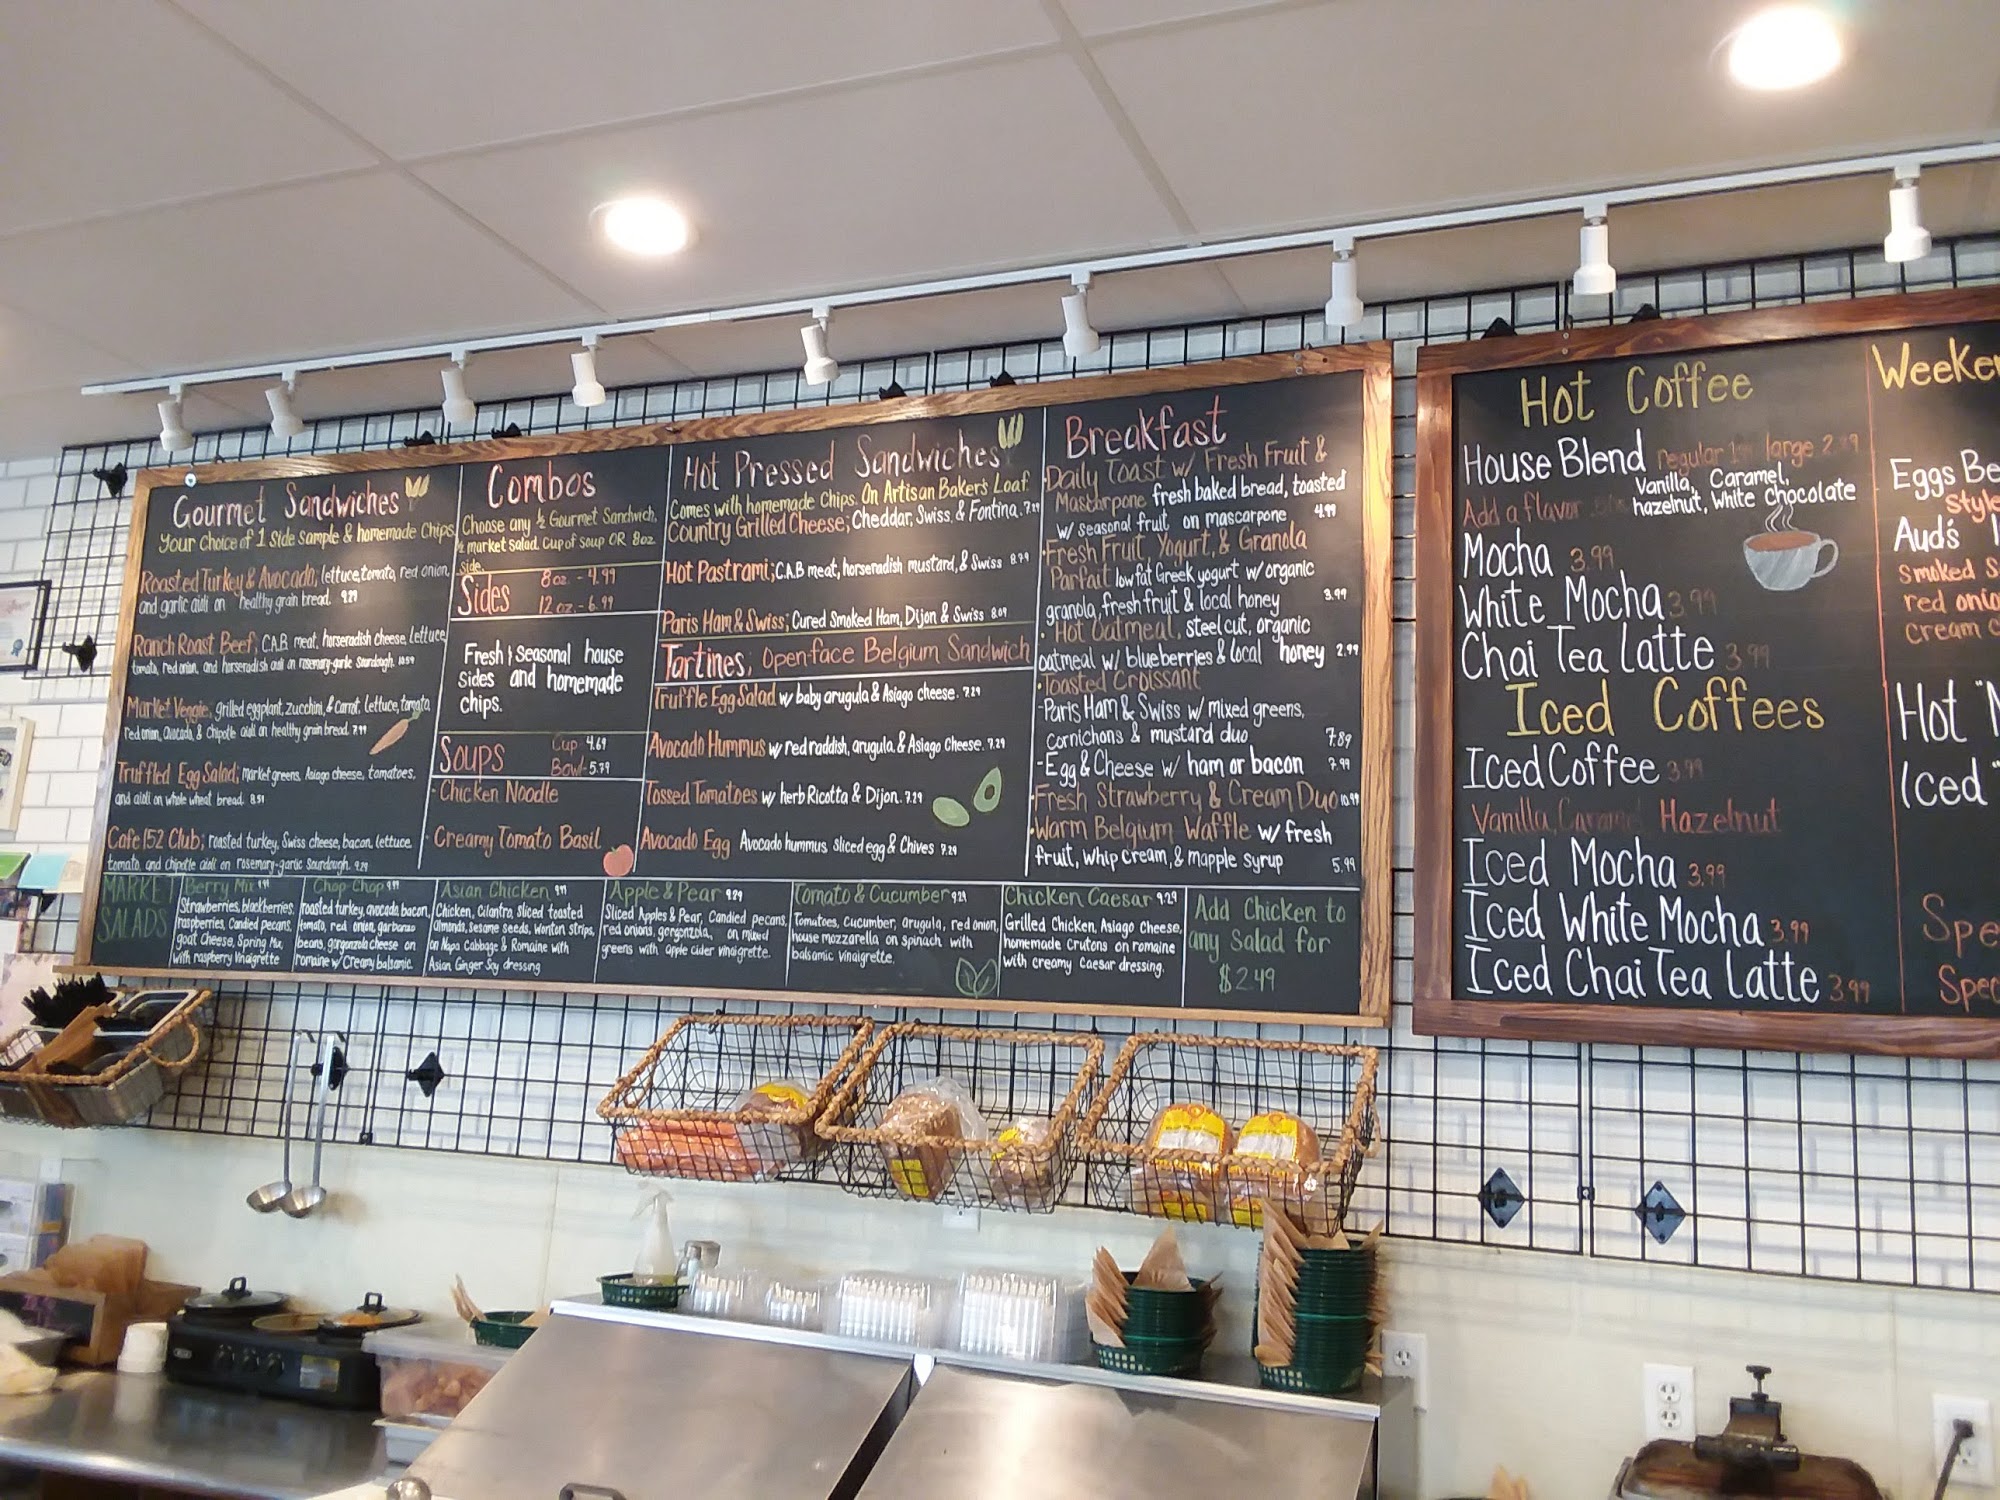 Gourmet Sandwiches
Your Choice of 1 Side Sample & homemade Chips
Roasted Turkey & Avocado; lettuce, tomato, red onion,
and garlic aioli on healthy grain bread. 9.29
Ranch Roast Beef; C.A.B. meat, horseradish cheese, lettuce
tomato, red onion, and horseradish aioli on rosemary-garlic sourdough. 10.59
Market Veggie; grilled eggplant, zucchini, & carrot, lettuce, tomato,
red onion, avocado, & chipotle aioli on healthy grain bread. 7.99
Truffled Egg Salad; market greens, Asiago cheese, tomatoes,
and aioli on whole wheat bread. 8.59
Cafe 152 Club; roasted turkey, Swiss cheese, bacon, lettuce
tomato and chipotle aioli on rosemary-garlic sourdough. 9.29
Combos
Choose any ½ Gourmet Sandwich,
½ market salad. Cup of soup OR 8oz
side.
Sides 8 oz. - 4.99
12 oz. - 6.99
Fresh & Seasonal house
sides and homemade
chips.
Soups Cup 4.69
Bowl - 5.79
- Chicken Noodle
- Creamy Tomato Basil
Hot Pressed Sandwiches
Comes with homemade Chips. On Artisan Baker's Loaf
Country Grilled Cheese; Cheddar, Swiss, & Fontina. 7.29
Hot Pastrami; C.A.B meat, horseradish mustard, & Swiss 8.79
Paris Ham & Swiss; Cured Smoked Ham, Dijon & Swiss 8.09
Tartines; Open-face Belgium Sandwich
Truffle Egg Salad w/ baby arugula & Asiago cheese. 7.29
Avocado Hummus w/ red raddish, arugula, & Asiago Cheese. 7.29
Tossed Tomatoes w/ herb Ricotta & Dijon. 7.29
Avocado Egg Avocado hummus sliced egg & Chives 7.29
Breakfast
·Daily Toast w/ Fresh Fruit &
Mascarpone fresh baked bread, toasted
w/ seasonal fruit on mascarpone 4.99
·Fresh Fruit, Yogurt, & Granola
Parfait low fat Greek yogurt w/ organic
granola, fresh fruit & local honey 3.99
· Hot Oatmeal, steel cut, organic
oatmeal w/ blueberries & local honey 2.99
·Toasted Croissant
-Paris Ham & Swiss w/ mixed greens,
cornichons & mustard duo 7.89
-Egg & Cheese w/ ham or bacon 7.99
·Fresh Strawberry & Cream Duo 10.99
·Warm Belgium Waffle w/ fresh
fruit, whip cream, & mapple syrup 5.99
MARKET
SALADS
Berry Mix 9.99
Strawberries, blackberries,
raspberries, Candied pecans,
goat Cheese, Spring Mix,
with raspberry Vinaigrette
Chop Chop 9.99
roasted turkey, avocado, bacon,
tomato, red onion, garbanzo
beans, gorgonzola cheese on
romaine w/ Creamy balsamic
Asian Chicken 9.99
Chicken, Cilantro, sliced toasted
almonds, sesame seeds, wonton strips,
on Napa Cabbage & Romaine with
Asian Ginger Soy dressing
Apple & Pear 9.29
Sliced Apples & Pear, Candied pecans,
red onions, gorgonzola, on mixed
greens with apple cider vinaigrette.
Tomato & Cucumber 9.29
Tomatoes, Cucumber, arugula, red onion,
house mozzarella on spinach with
balsamic Vinaigrette.
Chicken Caesar 9.29
Grilled Chicken, Asiago Cheese,
homemade Crutons on romaine
with creamy Caesar dressing.
Add Chicken to
any Salad for
$2.49
Hot Coffee
House Blend regular large
Add a flavor Vanilla, Caramel,
hazelnut, White Chocolate
Mocha 3.99
White Mocha 3.99
Chai Tea Latte 3.99
Iced Coffees
Iced Coffee 3.99
Vanilla, Caramel Hazelnut
Iced Mocha 3.99
Iced White Mocha 3.99
Iced Chai Tea Latte 3.99
Weeke
Eggs Be
Style
Aud's
Smoked S
red onio
cream c
Hot
Iced
Spe
Spec